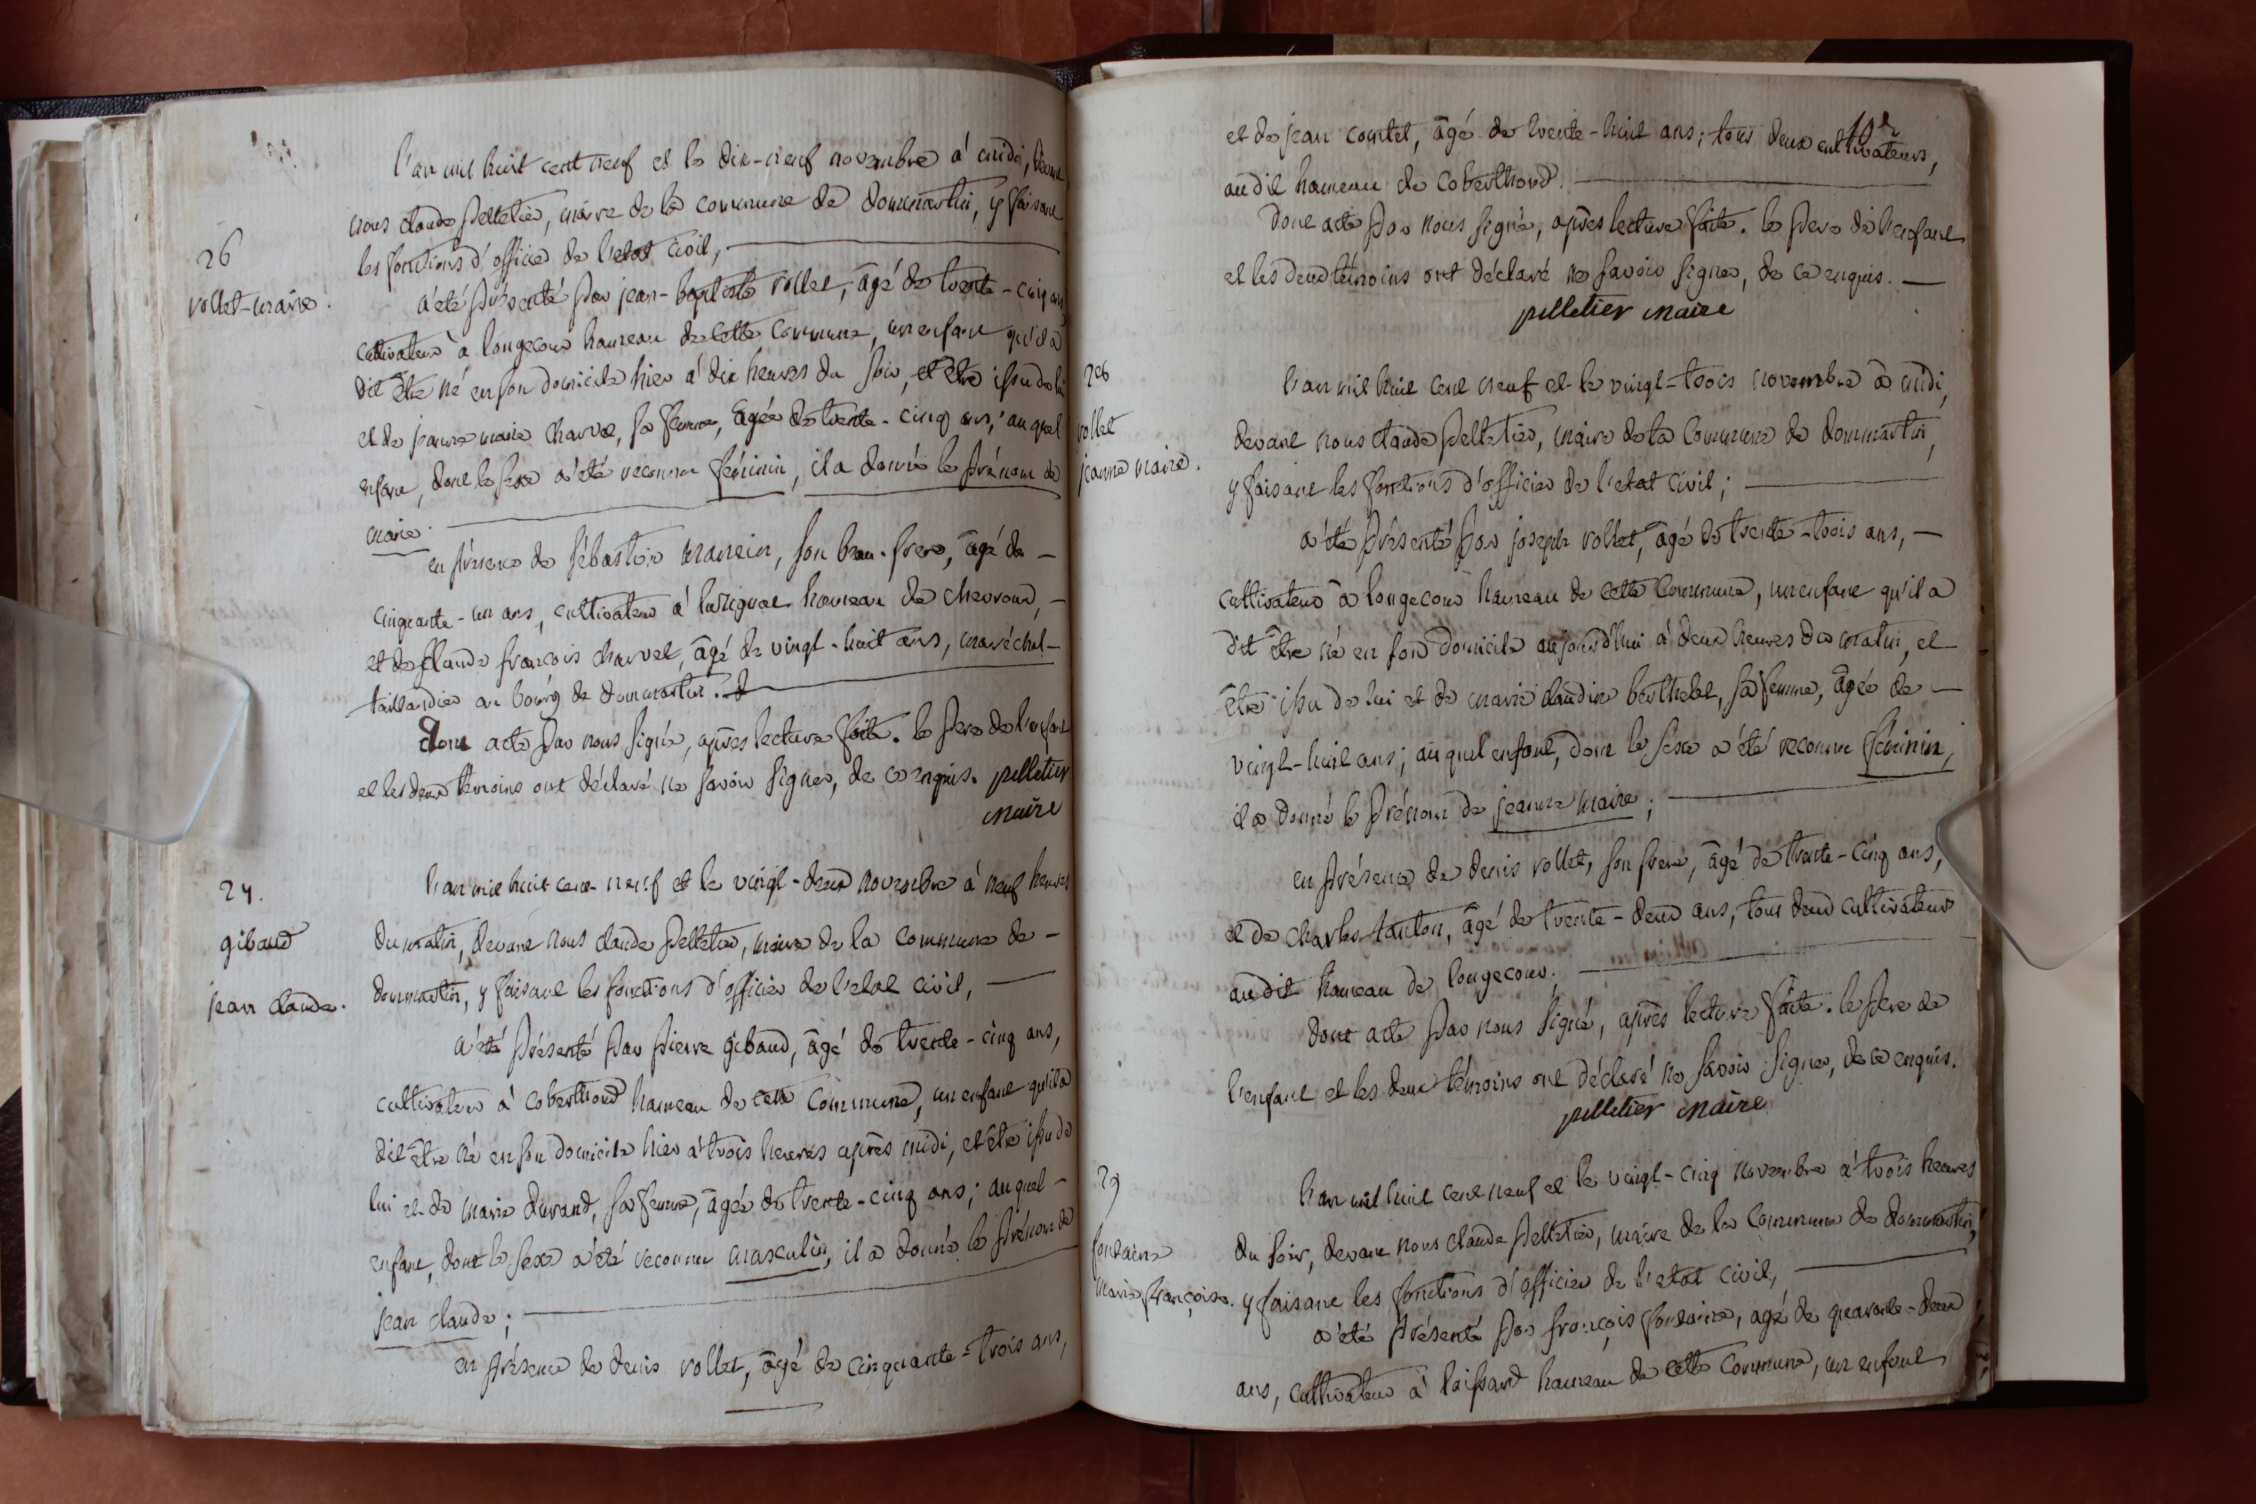 26
rollet-marie.
l'an mil huit cent neuf et le dix-neuf novembre à midi, devant
nous claude pelletier, maire de la commune de dommartin, y faisant
les fonctions d'officier de l'etat civil,
a été présenté par jean-baptiste rollet, âgé de trente-cinq ans
cultivateur à longecour hameau de cette commune, un enfant qu'il a
dit être né en son domicile hier à dix heures du soir, et être issu de lui
et de jeanne marie charvet, sa femme, âgée de trente-cinq ans; auquel
enfant, dont le sexe a été reconnu féminin, il a donné le prénom de
marie.
en présence de sébastien mamein, son beau-frere, âgé de
cinquante-un ans, cultivateur à hameau de chevroux,
et de claude françois charvet, âgé de vingt-huit ans, maréchal-
taillandier au bourg de dommartin.
dont acte par nous signé, après lecture faite. le pere de l'enfant
et les deux témoins ont déclaré ne savoir signer, de ce enquis. pelletier
maire
27.
gibaud
jean claude.
l'an mil huit cent neuf et le vingt-deux novembre à neuf heures
du matin, devant nous claude pelletier, maire de la commune de
dommartin, y faisant les fonctions d'officier de l'etat civil,
a été présenté par pierre gibaud, âgé de trente-cinq ans,
cultivateur à coberthoud hameau de cette commune, un enfant qu'il a
dit être né en son domicile hier à trois heures après midi, et être issu de
lui et de marie durand, sa femme, âgée de trente-cinq ans; auquel
enfant, dont le sexe a été reconnu masculin, il a donné le prénom de
jean claude;
en présence de denis rollet, âgé de cinquante-trois ans,
et de jean contet, âgé de trente-huit ans; tous deux cultivateurs,
audit hameau de coberthoud.
dont acte par nous signé, après lecture faite. le pere de l'enfant
et les deux témoins ont déclaré ne savoir signer, de ce enquis.
pelletier maire
28
rollet
jeanne marie.
l'an mil huit cent neuf et le vingt-trois novembre à midi,
devant nous claude pelletier, maire de la commune de dommartin,
y faisant les fonctions d'officier de l'etat civil;
a été présenté par joseph rollet, âgé de trente-trois ans,
cultivateur à longecour hameau de cette commune, un enfant qu'il a
dit être né en son domicile aujourd'hui à deux heures du matin, et
être issu de lui et de marie claudine berthelet, sa femme, âgée de
vingt-huit ans; auquel enfant, dont le sexe a été reconnu féminin,
il a donné le prénom de jeanne marie;
en présence de denis rollet, son frere, âgé de trente-cinq ans,
et de charles tanton, âgé de trente-deux ans, tous deux cultivateurs
audit hameau de longecour.
dont acte par nous signé, après lecture faite. le pere de
l'enfant et les deux témoins ont déclaré ne savoir signer, de ce enquis.
pelletier maire
29
fontaine
marie françoise.
l'an mil huit cent neuf et le vingt-cinq novembre à trois heures
du soir, devant nous claude pelletier, maire de la commune de dommartin,
y faisant les fonctions d'officier de l'etat civil,
a été présenté par françois fontaine, agé de quarante-deux
ans, cultivateur à laissard hameau de cette commune, un enfant